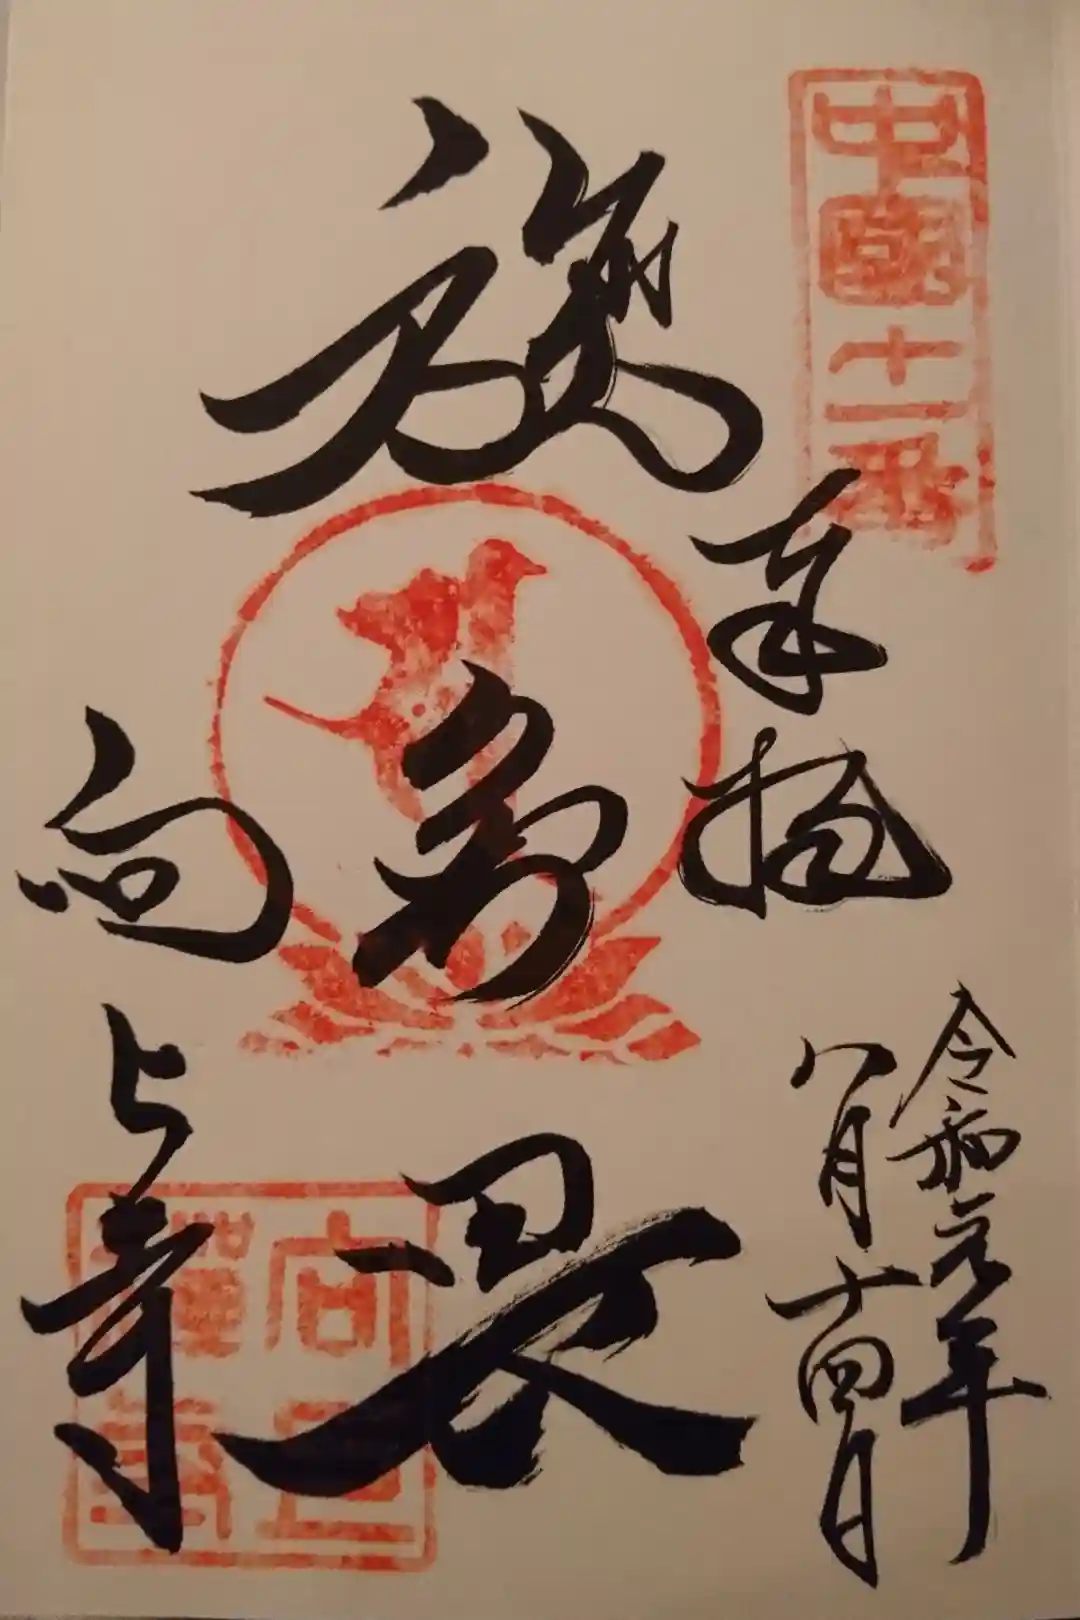 中國十一番
奉拝
令和元年
八月十四日
施無畏
向上寺
向上
禪寺